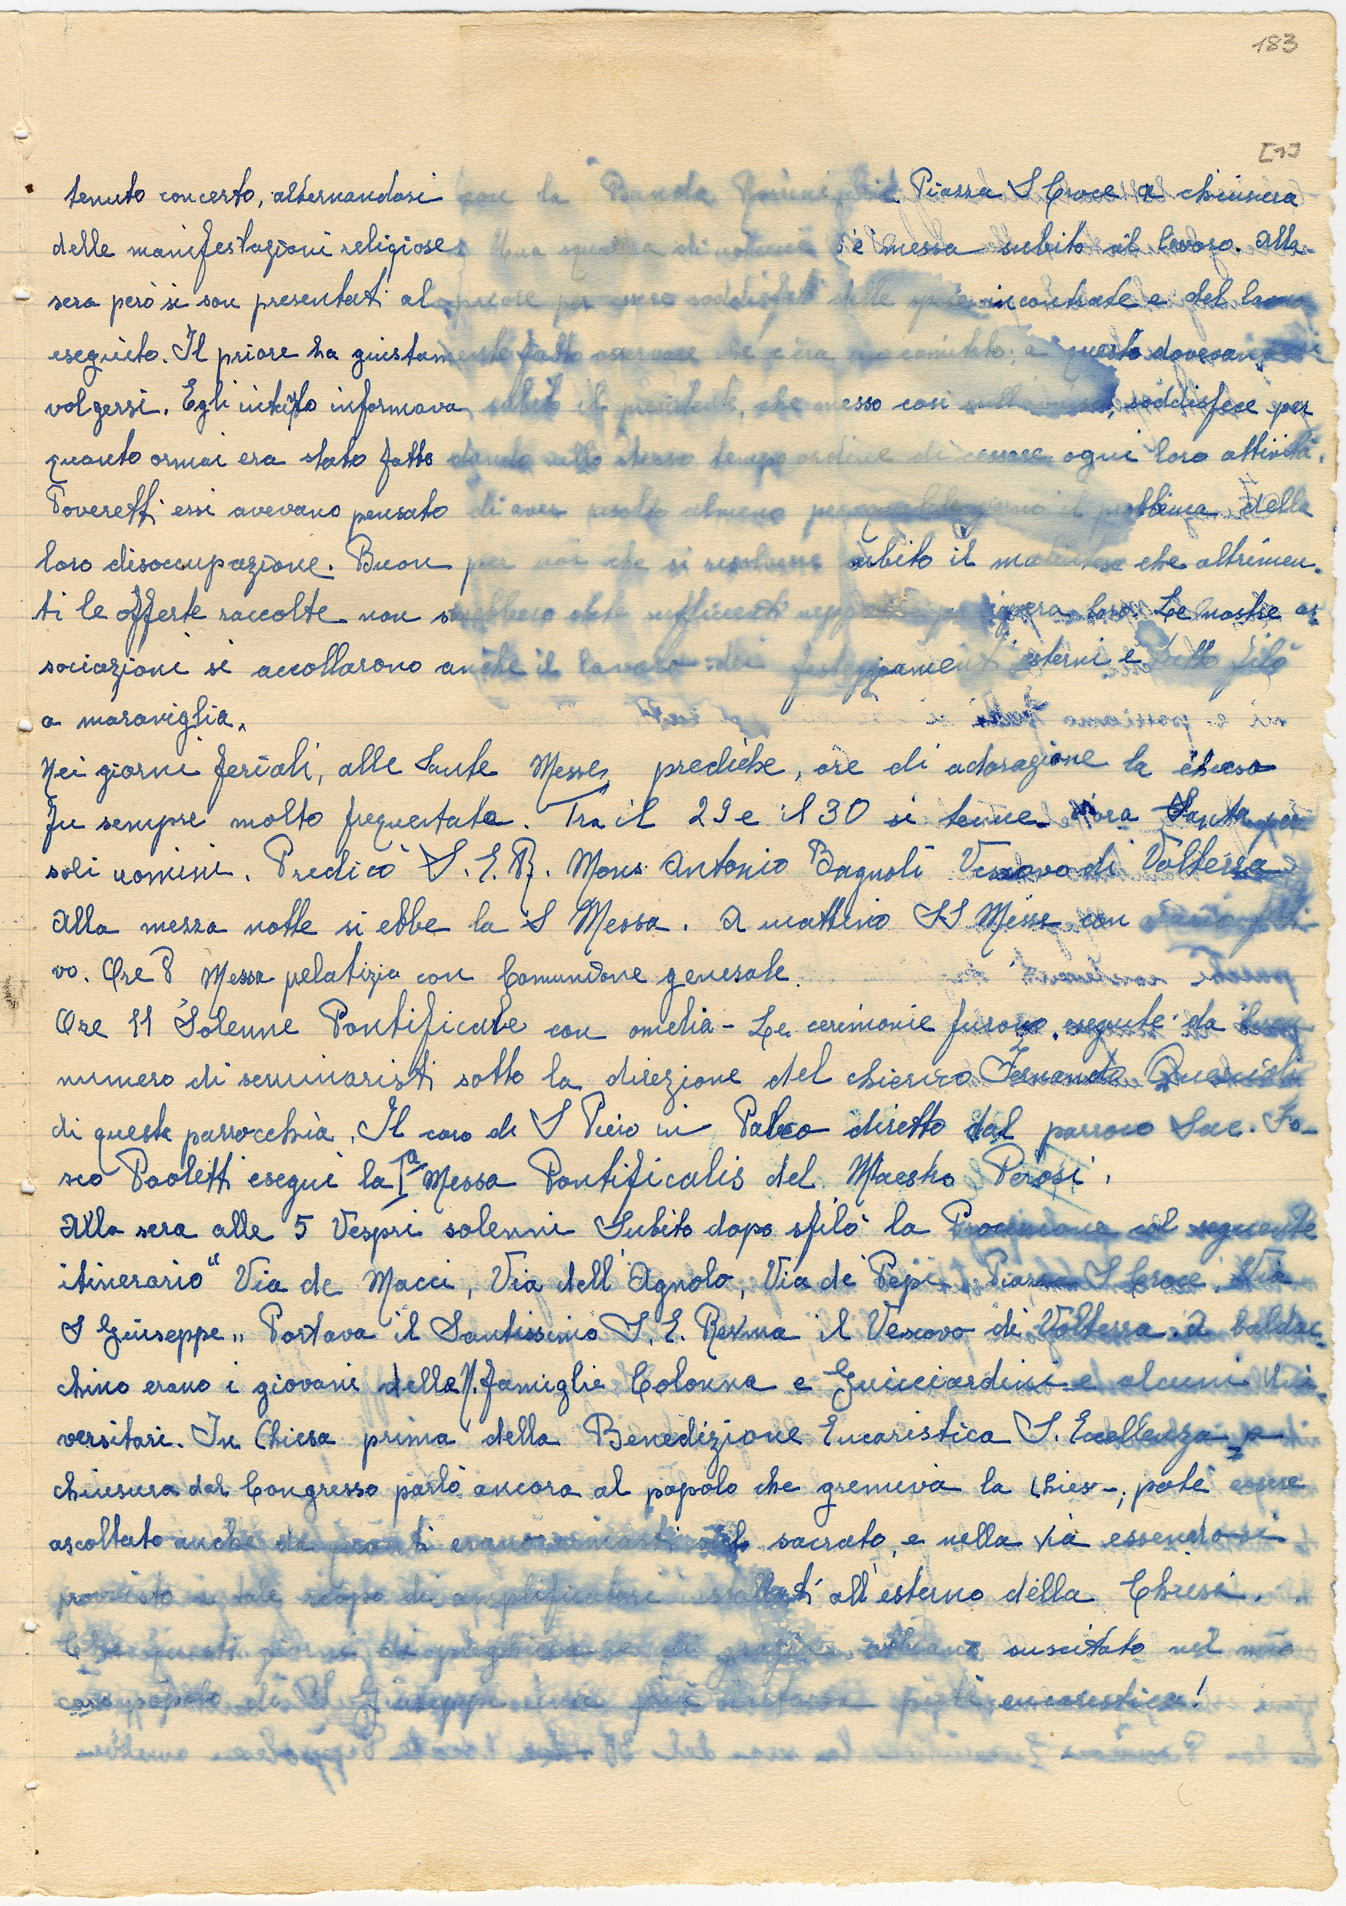 183
[7]
tenuto concerto, alternandosi con la Banda Piazza S Croce a chiusura
delle manifestazioni religiose. Una squadra di s'è messa subito al lavoro. Alla
sera però si son presentati al priore per essere soddisfatti delle spese incontrate e del lavoro
eseguito. Il priore ha giustamente fatto osservare che c'era un comitato; a questo dovevano ri
volgersi. Egli intanto informava subito il presidente, che messo così soddisfece per
quanto ormai era stato fatto dando nello stesso tempo ordine di cessare ogni loro attività.
Poveretti essi avevano pensato di aver risolto almeno per qualche giorno il problema della
loro disoccupazione. Buon per noi che si risolvesse subito il malinteso che altrimen-
ti le offerte raccolte non sarebbero state sufficienti neppure per l'opera loro. Le nostre as
sociazioni si accollarono anche il lavoro dei festeggiamenti esterni e tutto filò
a maraviglia.
Nei giorni feriali, alle Sante Messe, prediche, ore di adorazione la chiesa
fu sempre molto frequentata. Tra il 29 e il 30 si tenne l'ora Santa per
soli uomini. Predicò S. E. R. Mons Antonio Bagnoli Vescovo di Volterra
Alla mezza notte si ebbe la S Messa. Al mattino SS Messe con orario festi
vo. Ore 8 Messa pelatizia con Comunione generale.
Ore 11 Solenne Pontificale con omelia - Le cerimonie furono eseguite da buon
numero di seminaristi sotto la direzione del chierico Fernando
di questa parrocchia. Il coro di S Piero in Palco diretto dal parroco Sac. Fo-
sco Paoletti eseguì la Iª Messa Pontificalis del Maestro Perosi.
Alla sera alle 5 Vespri solenni Subito dopo sfilò la Processione col seguente
itinerario " Via de Macci, Via dell'Agnolo, Via de' Pepi, Piazza S Croce, Via
S Giuseppe „ Portava il Santissimo S. E. Rev.ma il Vescovo di Volterra. Al baldac-
chino erano i giovani della N. famiglie Colonna e Guicciardini e alcuni Uni-
versitari. In Chiesa prima della Benedizione Eucaristica S. Eccellenza a
chiusura del Congresso parlò ancora al popolo che gremiva la chiesa; poté essere
ascoltato anche da quanti erano rimasti sul sacrato, e nella via essendosi
provvisto a tale scopo di amplificatori installati all'esterno della Chiesa.
Che questi giorni di preghiera e di grazia abbiano suscitato nel mio
caro popolo di S Giuseppe una più sentita pietà eucaristica!